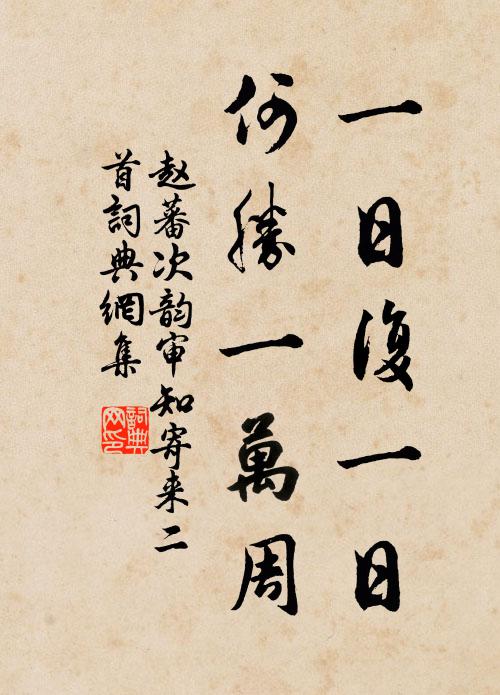 一日復一日
何勝一萬周
赵蕃次韵审知寄来二
首詞典網集
詞典网印